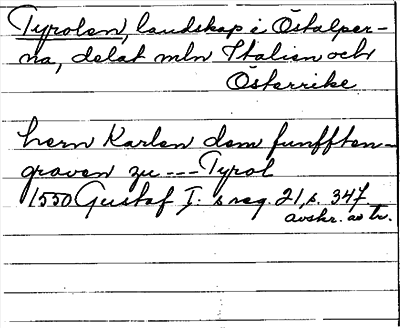 Tyrolen, landskap i Östalper-
na, delat mln Italien och
Österrike
hern Karlen dem funfften---
graven zu --- Tyrol
1550 Gustaf I:s reg. 21, s. 347.
avskr. av tr.